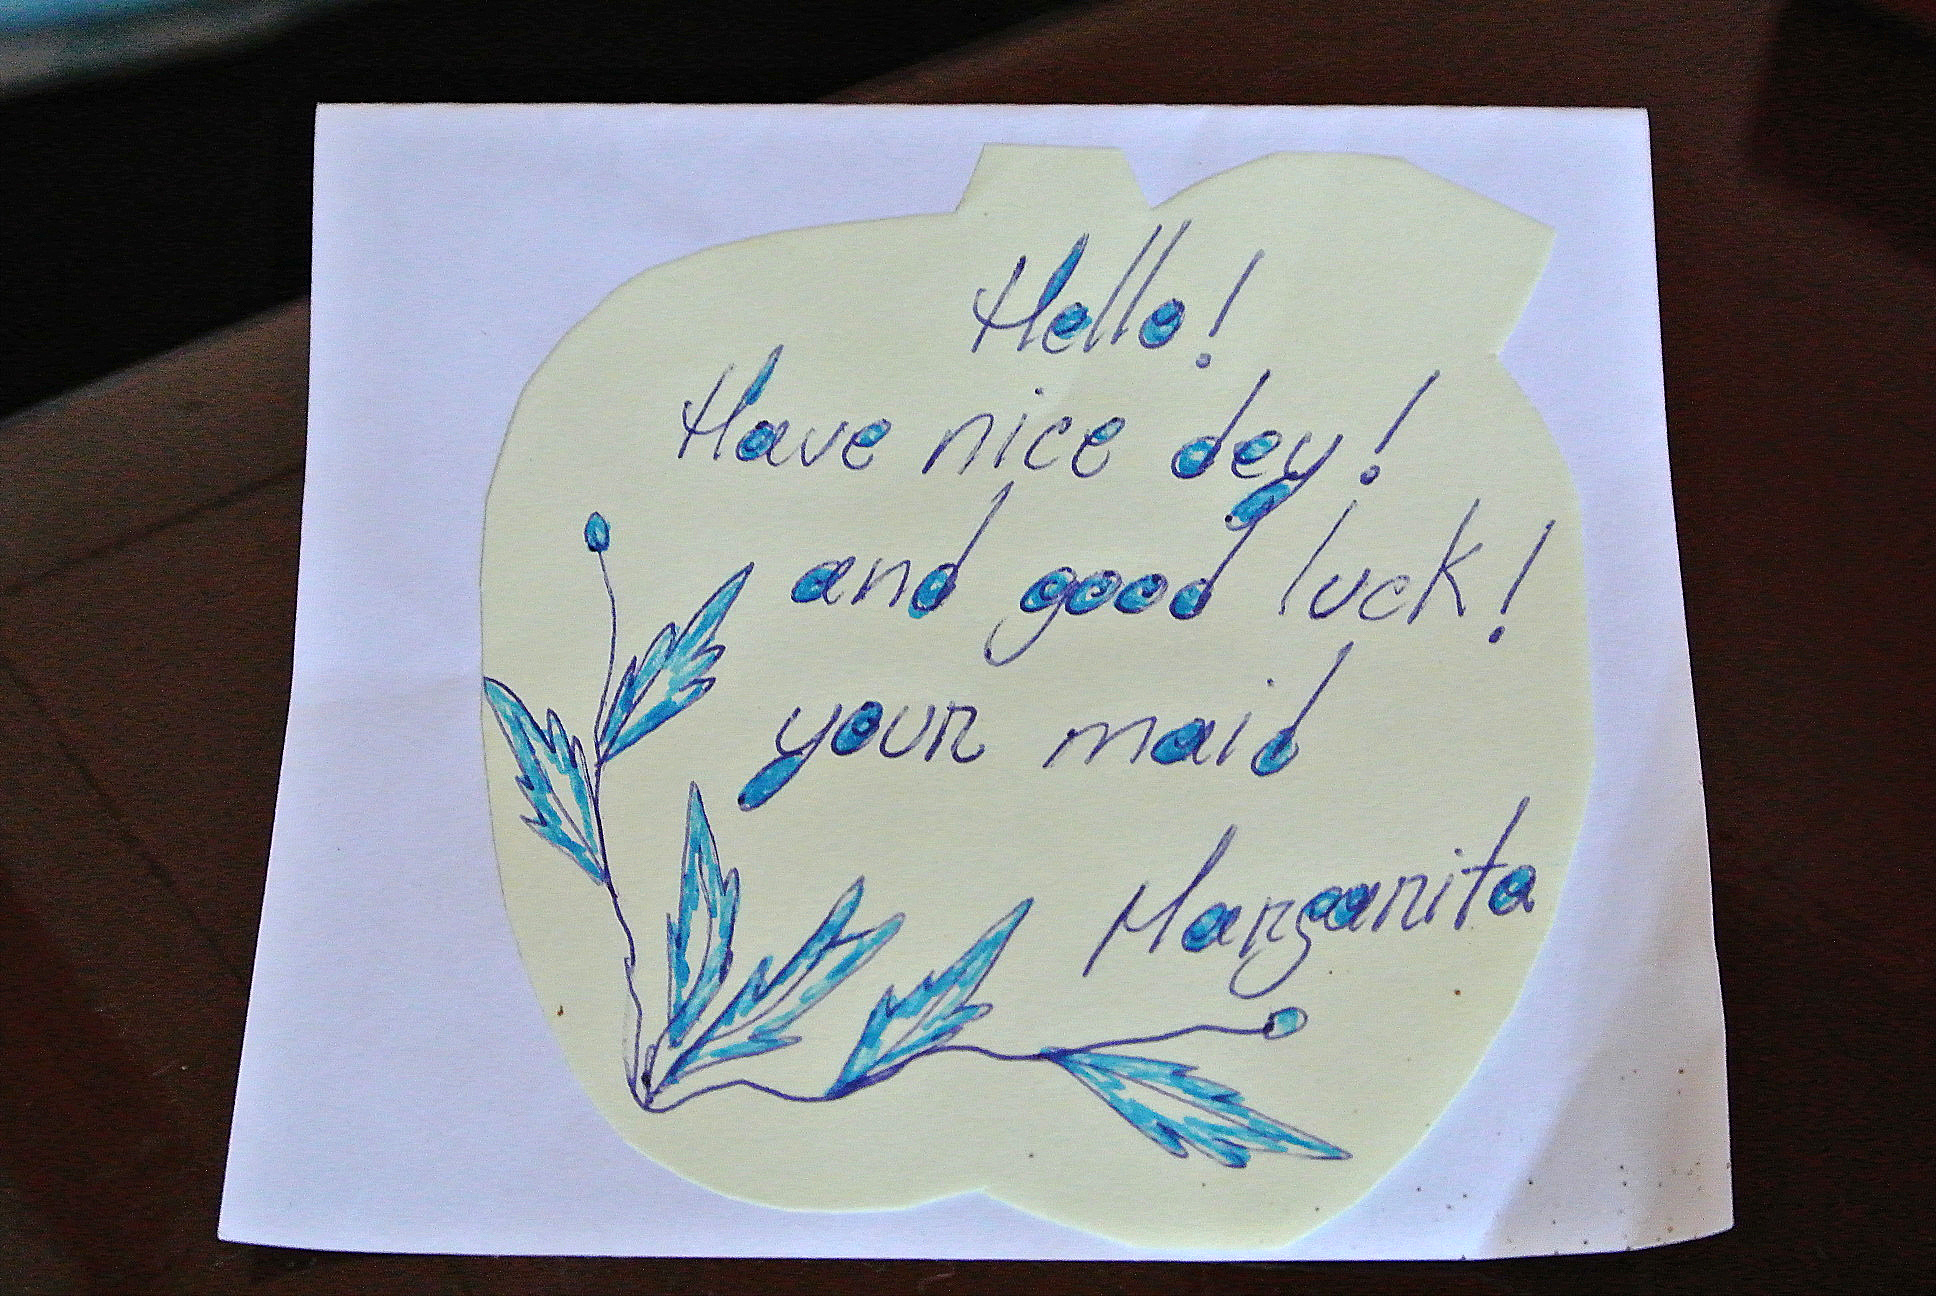 Hello!
Have nice dey!
and good luck!
your maid
Margarita